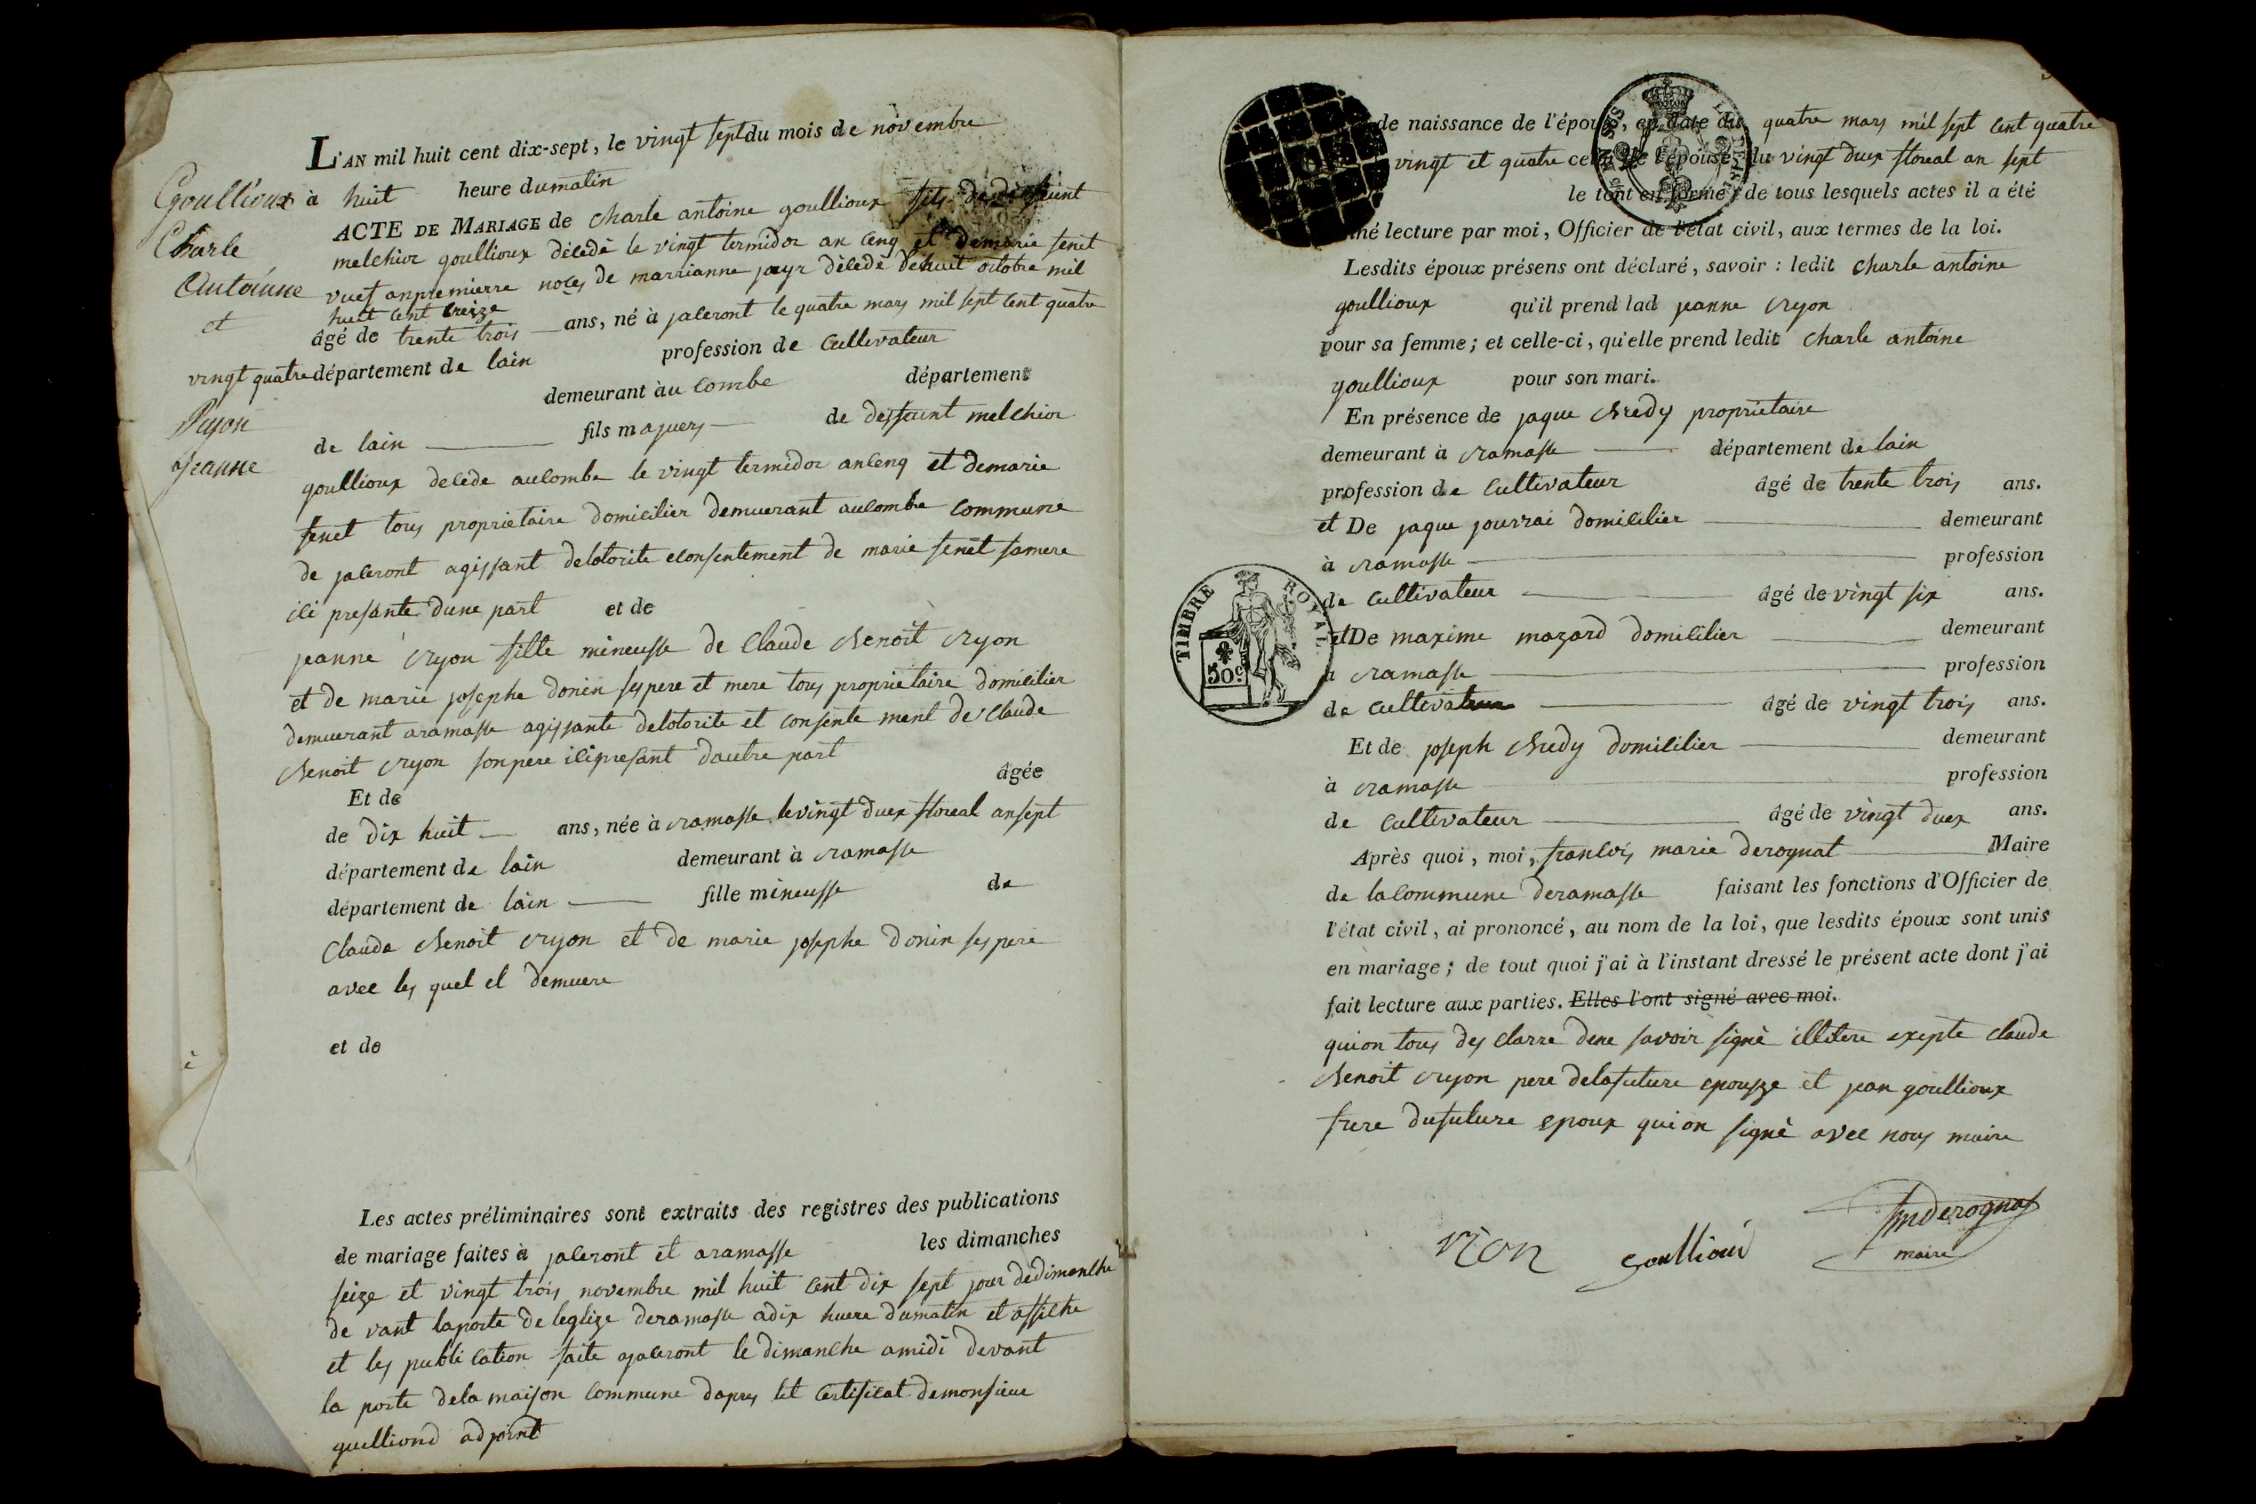 L'AN mil huit cent dix-sept, le vingt sept du mois de novembre
à huit heure du matin
Goullioux
Charle
Antoinne
et
Jeanne
ACTE DE MARIAGE de charle antoine goullioux fils de
melchior goullioux décédé le vingt termidor an cenq et de marie fenet
vuef anpremierre noces de marrianne décédé octobre mil
huit cent treize
âgé de trente trois ans, né à jaceront le quatre mars mil sept cent quatre
vingt quatre département de lain profession de cultivateur
demeurant à au combe département
de lain fils majuers de deffunt melchior
goullioux decede au combe le vingt termidor an cenq et de marie
fenet tous proprietaire domicilier demuerant au combe commune
de jaceront agissant delotorite econsentement de marie fenet samere
ici presante dune part et de
jeanne ryon fille mineusse de claude Benoit ryon
et de marie josephe donin ses pere et mere tous proprietaire domicilier
demuerant aramasse agissante delotorite et consente ment de claude
Benoit ryon son pere ici presant dautre part
Et de âgée
de dix huit ans, née à ramasse le vingt duex floreal an sept
département de lain demeurant à ramasse
département de lain fille mineusse de
claude Benoit ryon et de marie josephe donin ses pere
avec les quel el demuere
et de
Les actes préliminaires sont extraits des registres des publications
de mariage faites à jaceront et aramasse les dimanches
seize et vingt trois novembre mil huit cent dix sept jour de dimanche
de vant laporte de leglize deramasse a dix huere dumatin et affiche
et les publication faite ajaceront le dimanche amidi devant
la porte dela maison commune dapres let certificat demonsieur
adjoint
de naissance de l'époux, en date du quatre mars mil sept cent quatre
vingt et quatre celui de l'épouse, du vingt duex floreal an sept
le tout en forme; de tous lesquels actes il a été
né lecture par moi, Officier de l'état civil, aux termes de la loi.
Lesdits époux présens ont déclaré, savoir : ledit charle antoine
goullioux qu'il prend lad jeanne ryon
pour sa femme; et celle-ci, qu'elle prend ledit charle antoine
goullioux pour son mari.
En présence de jaque Bredy proprietaire
demeurant à ramasse département de lain
profession de cultivateur âgé de trente trois ans.
et De jaque domicilier demeurant
à ramasse profession
de cultivateur âgé de vingt six ans.
et De maxime mazard domicilier demeurant
à ramasse profession
de cultivateur âgé de vingt trois ans.
Et de joseph Bredy domicilier demeurant
à ramasse profession
de cultivateur âgé de vingt duex ans.
Après quoi, moi, francois marie derognat Maire
de lacommune deramasse faisant les fonctions d'Officier de
l'état civil, ai prononcé, au nom de la loi, que lesdits époux sont unis
en mariage; de tout quoi j'ai à l'instant dressé le présent acte dont j'ai
fait lecture aux parties. Elles l'ont signé avec moi.
quion tous des clarre dene savoir signé illitere exepte claude
Benoit ryon pere delafuture epousze et jean goullioux
frere dufuture epoux quion signé avec nous maire
TIMBRE ROYAL
50c
rion
goullioux
fmderognat
maire